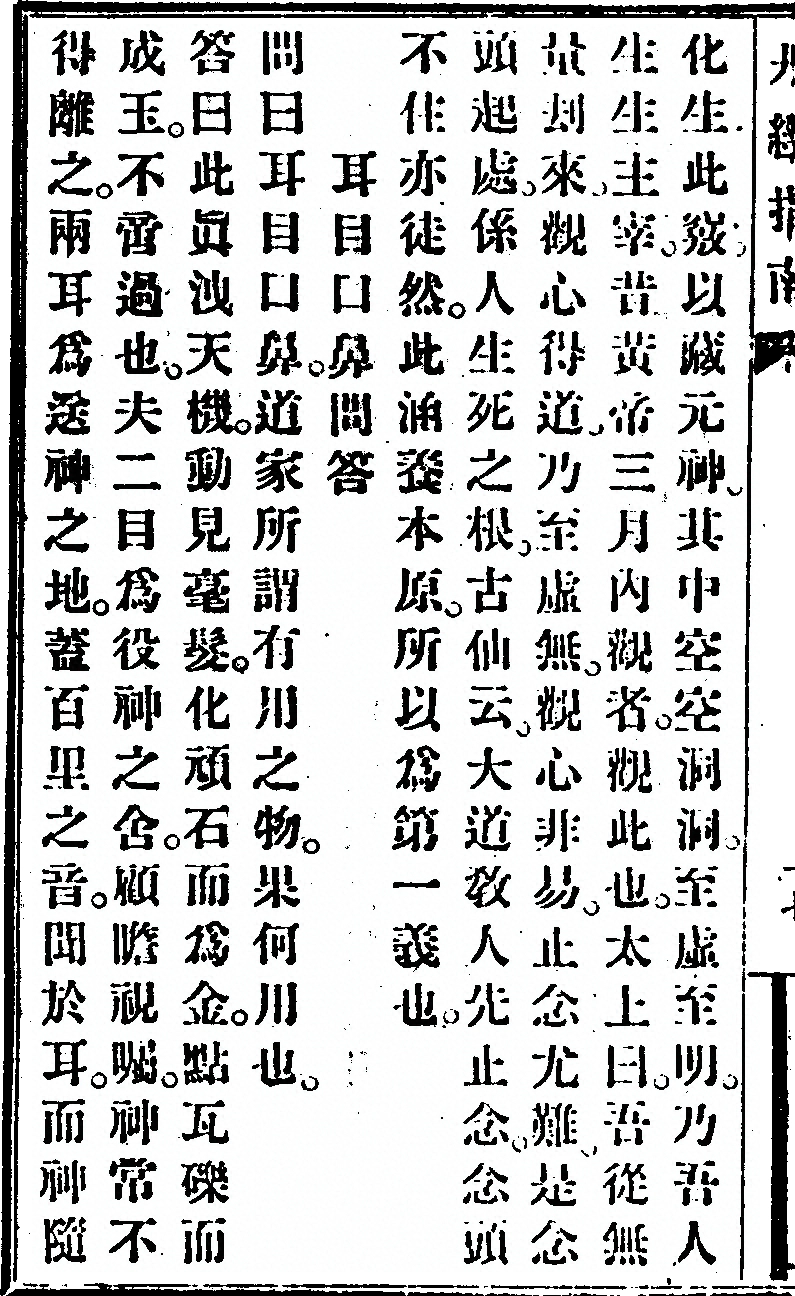 丹經指南
化生此竅以藏元神其中空空洞洞。至虛至明。乃吾人
生生主宰。昔黃帝三月內觀者。觀此也。太上曰。吾從無
量刦來。觀心得道。乃至虛無。觀心非易。止念尤難。是念
頭起處。係人生死之根。古仙云。大道敎人先止念。念頭
不住亦徒然。此涵養本原。所以爲第一義也。
耳目口鼻問答
問曰耳目口鼻。道家所謂有用之物。果何用也。
答曰此眞洩天機。動見毫髮。化頑石而爲金。點瓦礫而
成玉。不啻過也。夫二目爲役神之舍。顧瞻視矚。神常不
得離之。兩耳爲送神之地。蓋百里之音。聞於耳。而神隨